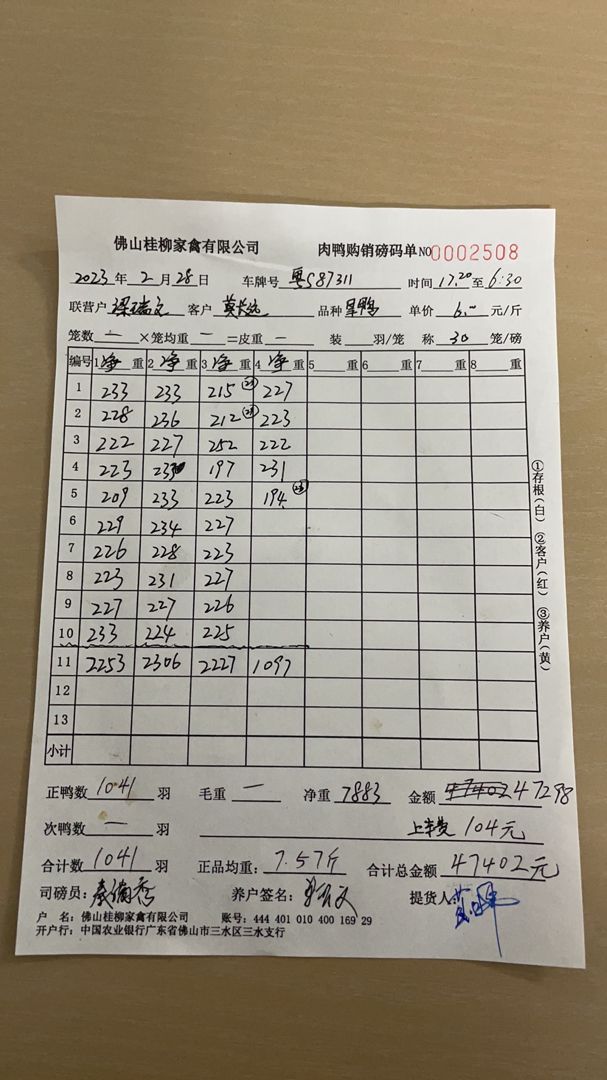 佛山桂柳家禽有限公司 肉鸭购销磅码单 NO 0002508
2023年 2月 28日 车牌号 粤S87311 时间 17.20 至 6:30
联营户 梁瑞文 客户 品种 旱鸭 单价 6.00 元/斤
笼数 一 ×笼均重 一 =皮重 一 装 羽/笼 称 30 笼/磅
编号 1 净 重 2 净 重 3 净 重 4 净 重 5 重 6 重 7 重 8 重
1 233 233 215 227
2 228 236 212 223
3 222 227 252 222
4 223 197 231
5 209 233 223 194
6 229 234 227
7 226 228 223
8 223 231 227
9 227 227 226
10 233 224 225
11 2253 2306 2227 1097
12
13
小计
①存根(白) ②客户(红) ③养户(黄)
正鸭数 1041 羽 毛重 一 净重 7883 金额 47402 47298
次鸭数 一 羽 上车费 104元
合计数 1041 羽 正品均重: 7.57斤 合计总金额 47402元
司磅员: 养户签名: 提货人:
户 名: 佛山桂柳家禽有限公司 账号: 444 401 010 400 169 29
开户行: 中国农业银行广东省佛山市三水区三水支行